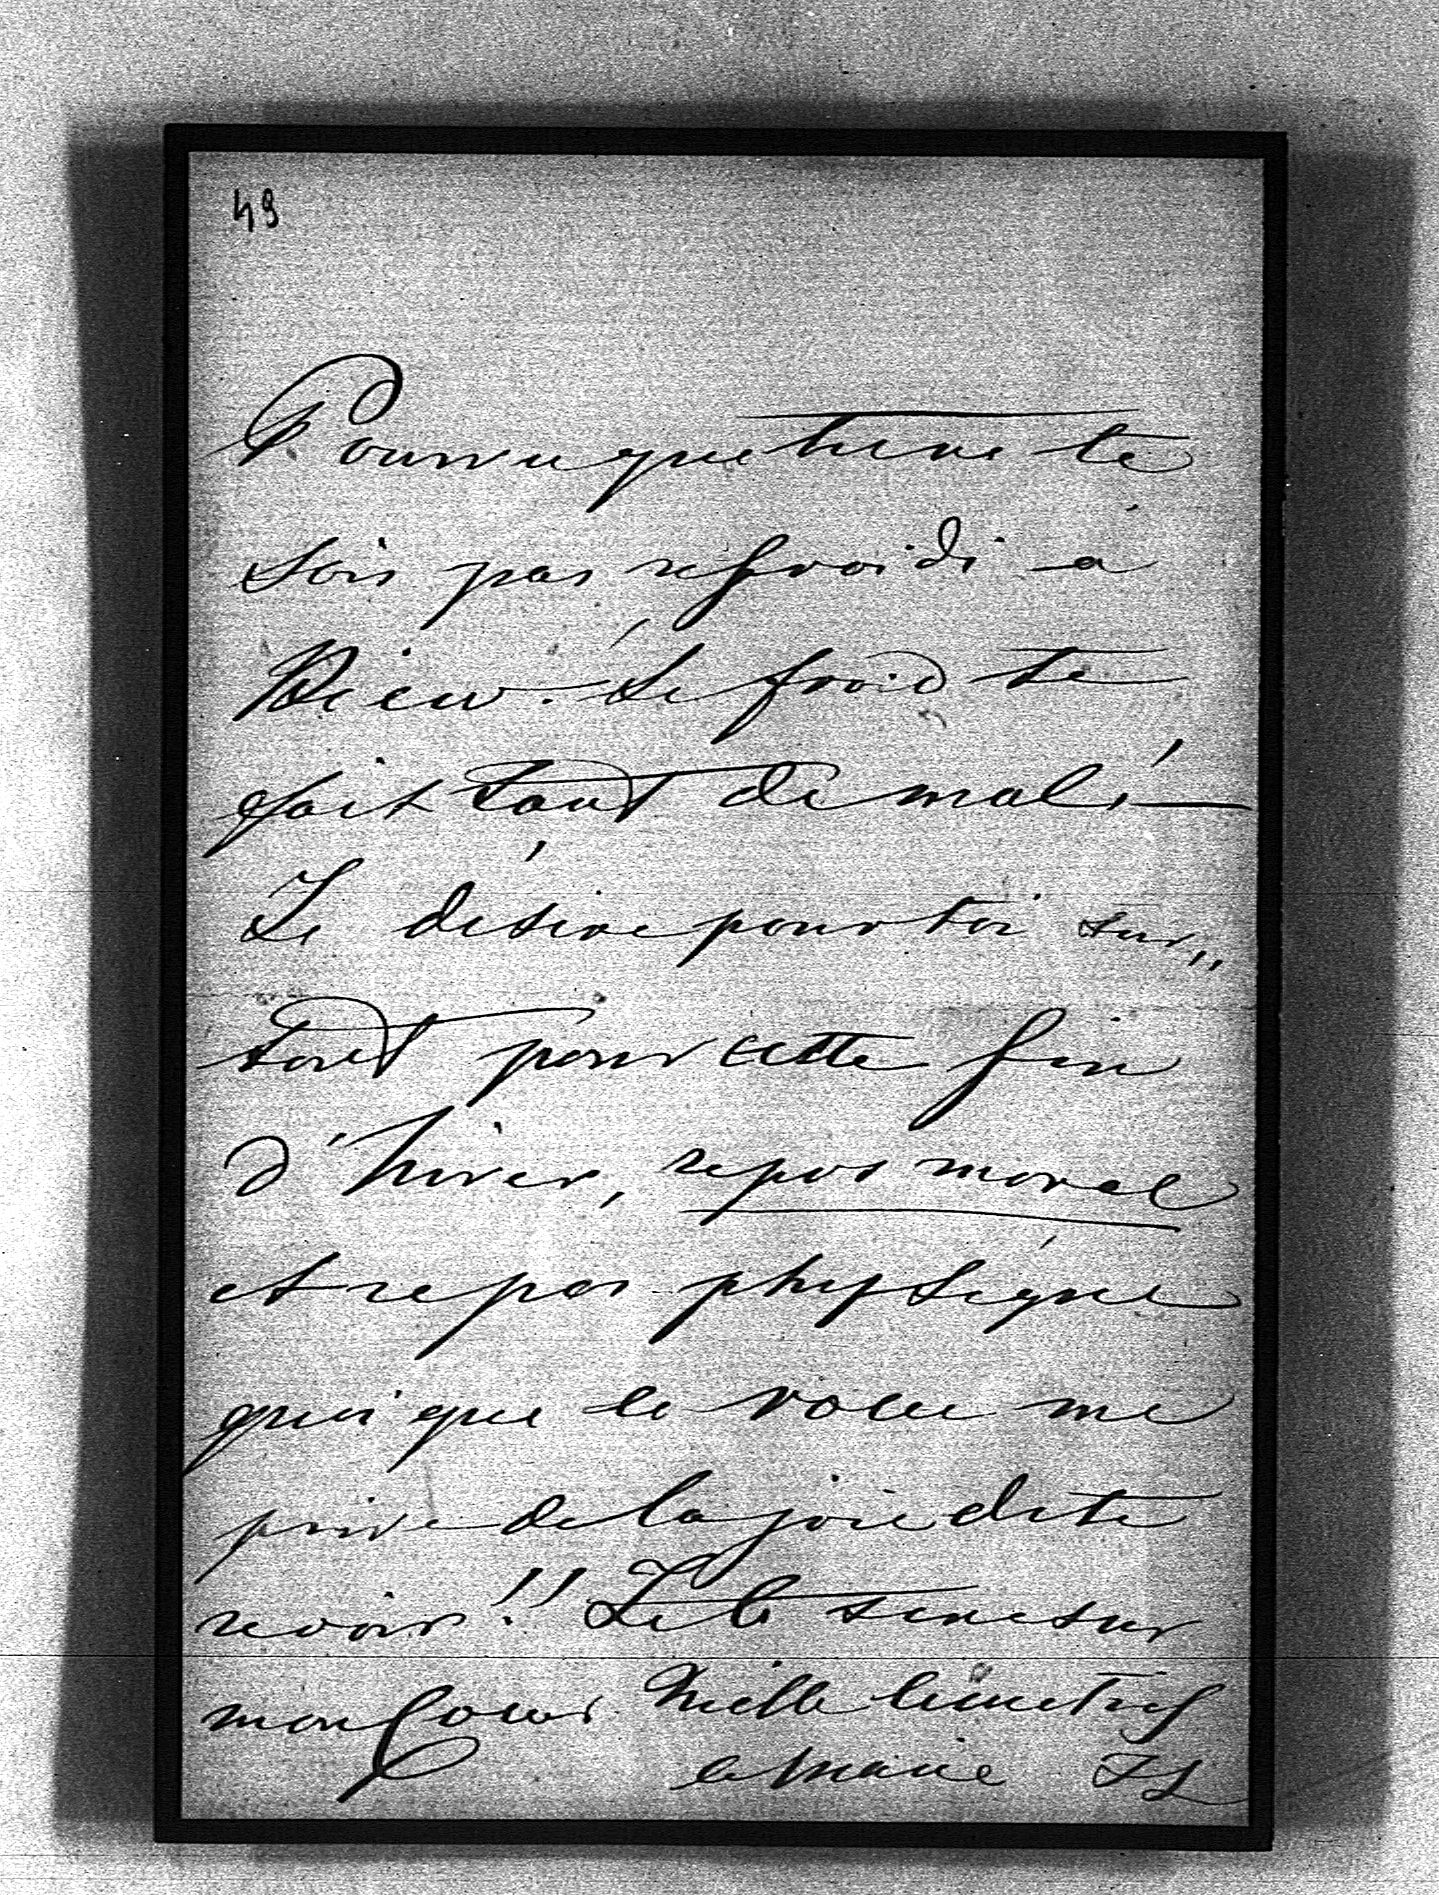 49
Pourvu que tu ne te
sois pas refroidi à
Dieu. Le froid te
fait tant de mal! —
Je désire pour toi sur,,
tout pour cette fin
d'hiver, repos moral
et repos physique
quoique le vœu me
prive de la joie de te
revoir!! Je te serre sur
mon Coeur Mille